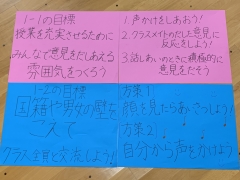 1-1の目標
授業を充実させるために
みんなで意見をだしあえる
雰囲気をつくろう
1.声かけをしあおう!
2.クラスメイトのだした意見に
反応をしよう!
3.話しあいのときに積極的に
意見をだそう
1-2の目標
国籍や男女の壁を
こえて
クラス全員と交流しよう!
方案1
顔を見たらあいさつしよう!
方案2
自分から声をかけよう